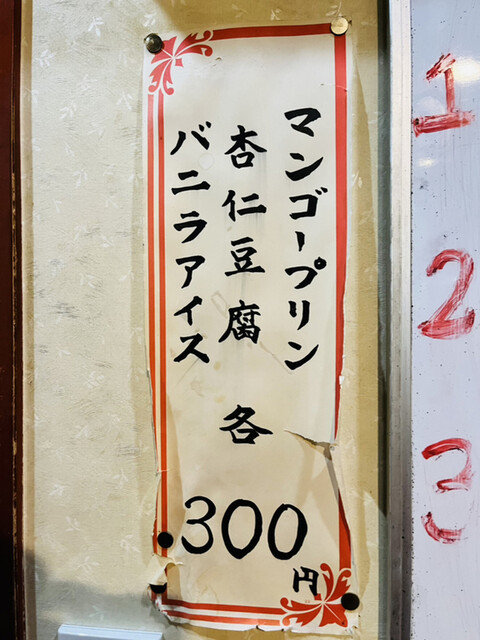 マンゴープリン
杏仁豆腐
バニラアイス
各
300
円
1
2
3